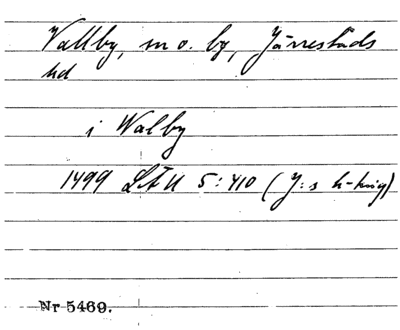 Vallby, sn o. by, Järrestads
hd
i Walby
1499 LÅU 5:410 (J:s h-ting)
Nr 5469.